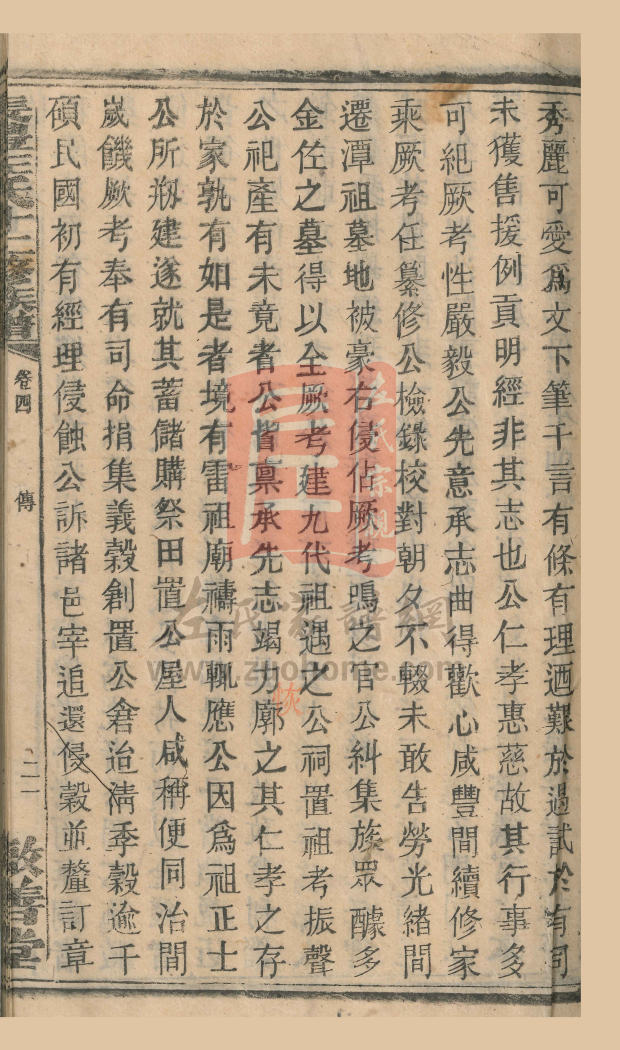 秀麗可愛爲文下筆千言有條有理迺艱於過試於有司
未獲售援例貢明經非其志也公仁孝惠慈故其行事多
可紀厥考性嚴毅公先意承志曲得歡心咸豐間續修家
乘厥考任纂修公檢錄校對朝夕不輟未敢告勞光緒間
遷潭祖墓地被豪右侵佔厥考鳴之官公糾集族眾醵多
金佐之墓得以全厥考建九代祖遇之公祠置祖考振聲
公祀產有未竟者公皆稟承先志竭力廓之其仁孝之存
於家孰有如是者境有雷祖廟禱雨輒應公因爲祖正士
公所剏建遂就其蓄儲購祭田置公屋人咸稱便同治間
歲饑厥考奉有司命捐集義穀創置公倉迨淸季穀逾千
碩民國初有經理侵蝕公訴諸邑宰追還侵穀並釐訂章
氏十二修族譜
卷四
傳
二
敦善堂
左氏宗親
左氏族譜網
www.zuohome.com